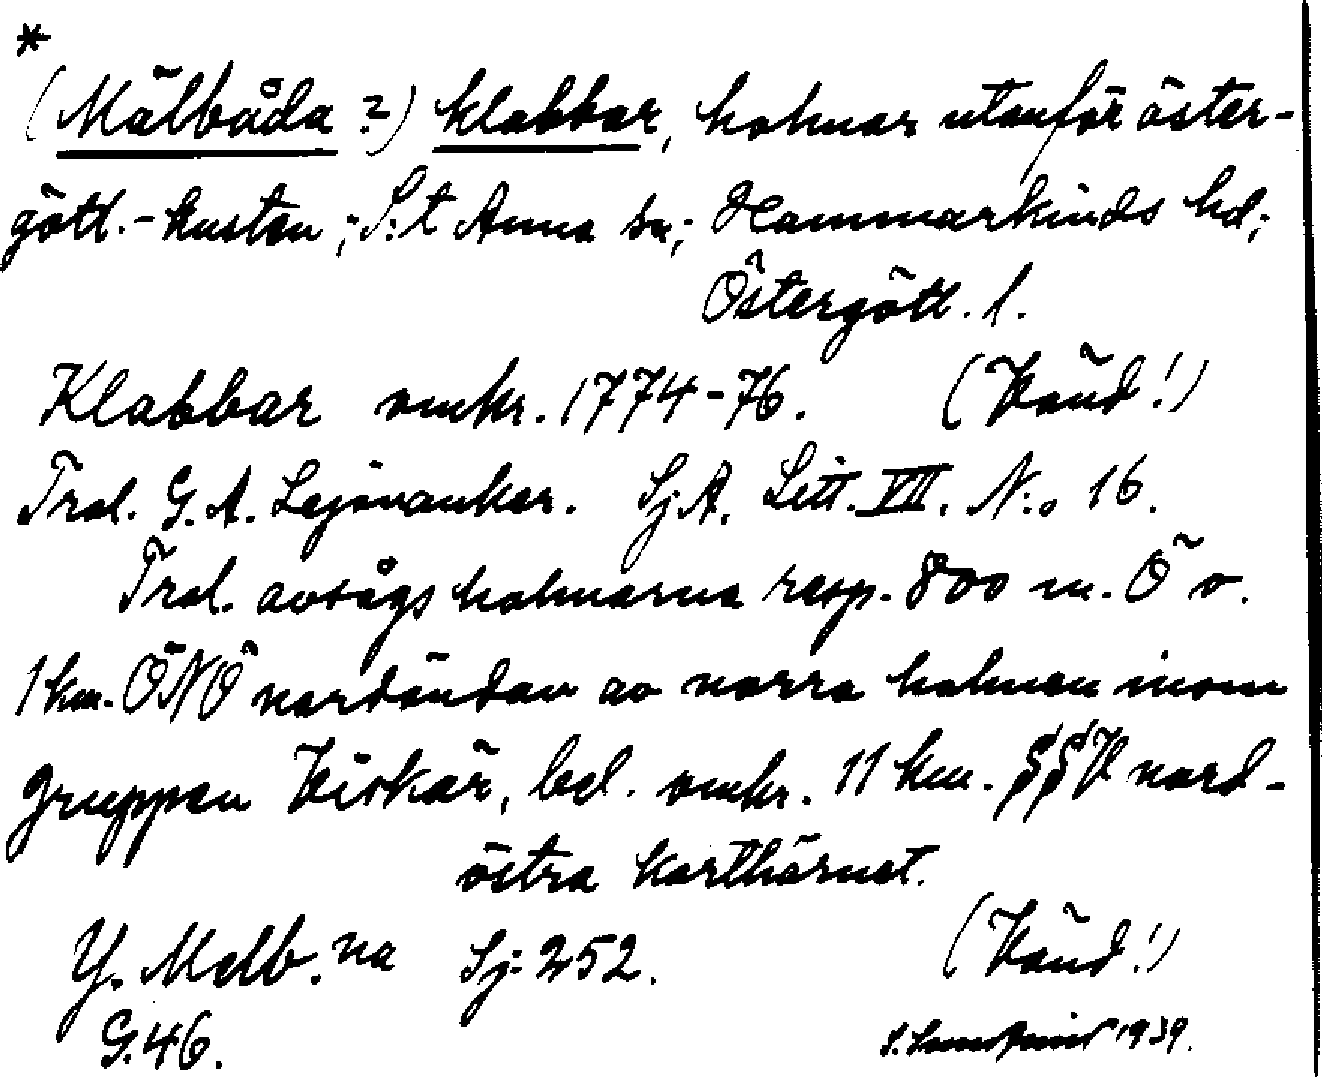 *
(Mälbåda ?) klabbar, holmar utanför öster-
götl.-kusten; S:t Anna sn; Hammarkinds hd;
Östergötl. l.
Klabbar omkr. 1774-76. (Vänd!)
Trol. G. A. Lejonanker. Sj. A. Litt. VII. N:o 16.
Trol. avsågs holmarna resp. 800 m. Ö o.
1 km. ÖNÖ nordändan av norra holmen inom
gruppen Viskär, bel. omkr. 11 km. SSV nord-
östra korthörnet.
Y. Melb. na Sj: 252. (Vänd!)
G. 46. 1939.